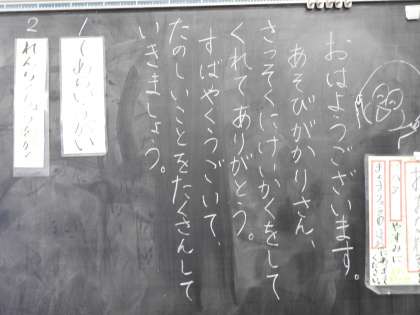 おはようございます。
あそびがかりさん、
さっそくにけいかくをして
くれてありがとう。
すばやくうごいて、
たのしいことをたくさんして
いきましょう。
1
2